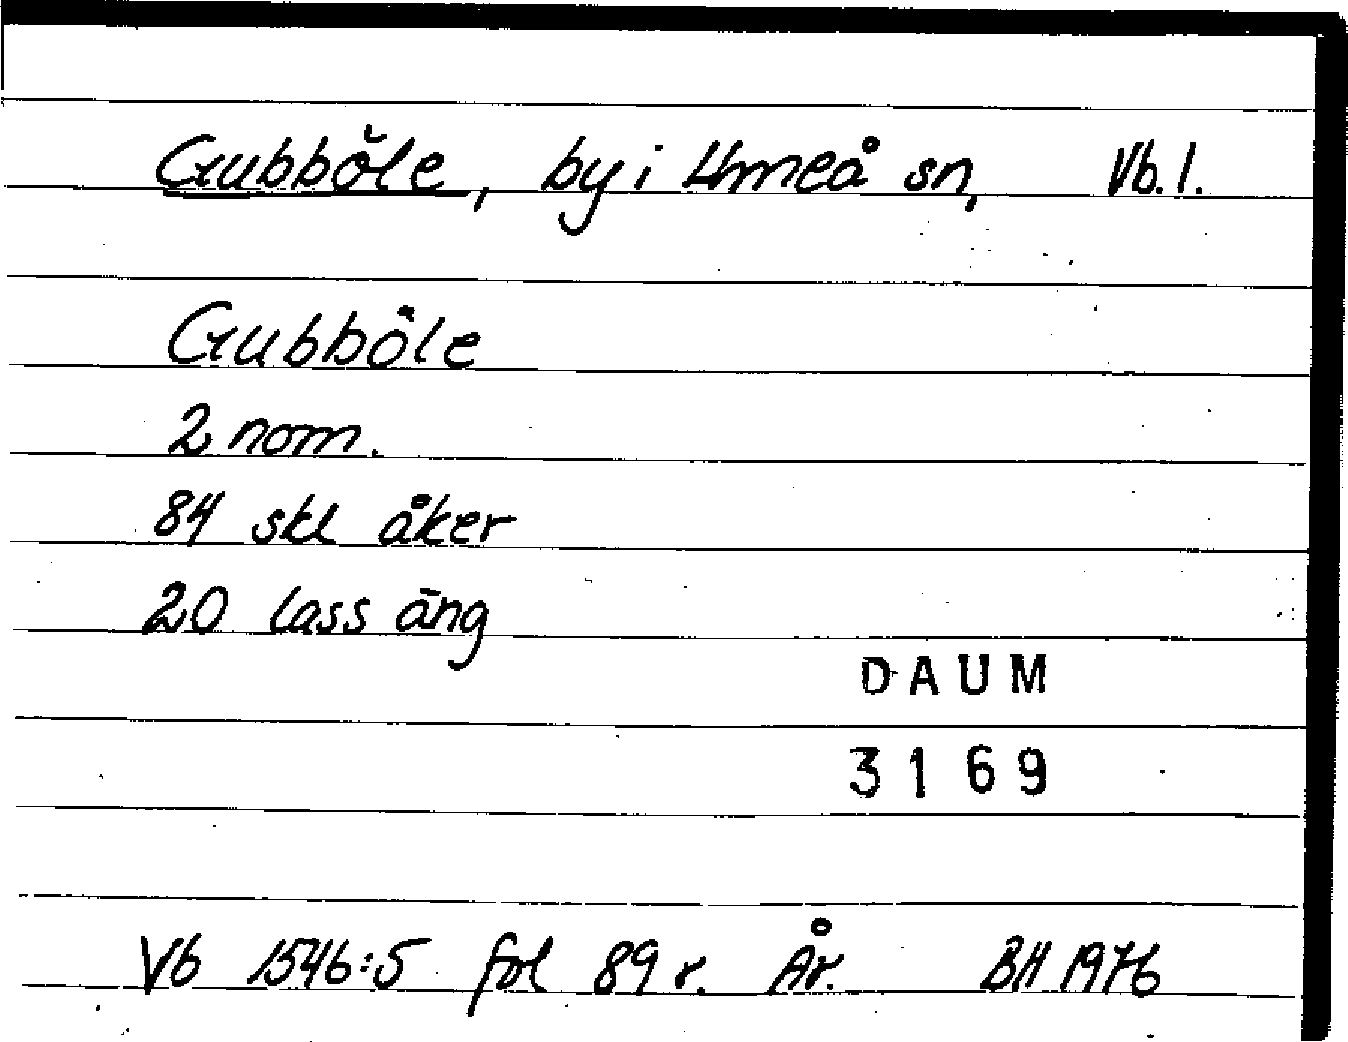 Gubböle, by i Umeå sn, Vb. l.
Gubböle
2 nom.
84 skl åker
20 lass äng
DAUM
3169
Vb 1546:5 fol 89 r. År. BH 1976